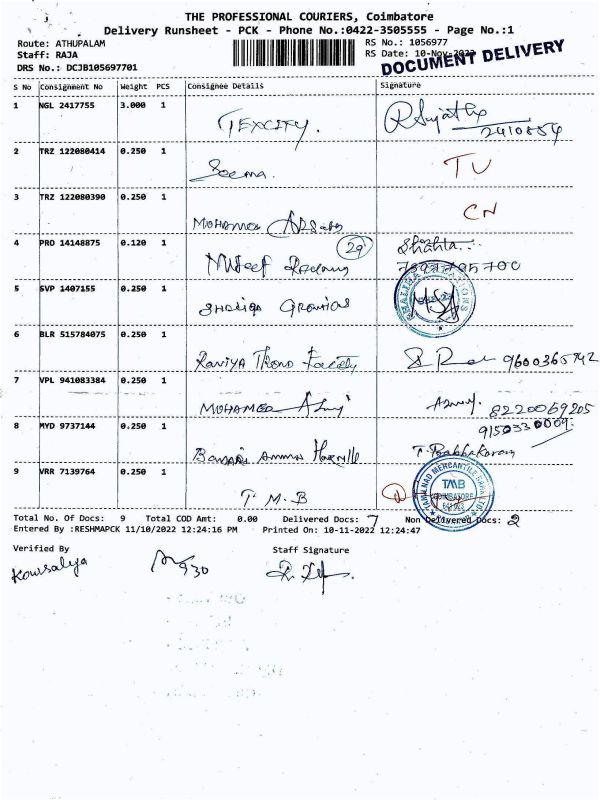 THE PROFESSIONAL COURIERS, Coimbatore
Delivery Runsheet - PCK - Phone No.:0422-3505555 - Page No.:1
Route: ATHUPALAM RS No.: 1056977
Staff: RAJA RS Date: 10-Nov-2022
DRS No.: DCJB105697701 DOCUMENT DELIVERY
S No Consignment No Weight PCS Consignee Details Signature
1 NGL 2417755 3.000 1 TEXCITY. 2410854
2 TRZ 122080414 0.250 1 Seema. TU
3 TRZ 122080390 0.250 1 MOHAMED CN
4 PRO 14148875 0.120 1 29
5 SVP 1407155 0.250 1
6 BLR 515784075 0.250 1 9600365742
7 VPL 941083384 0.250 1 MOHAMED 8220069205
8 MYD 9737144 0.250 1 9150330009. T. Prabhakaran
9 VRR 7139764 0.250 1 T.M.B TAMILNAD MERCANTILE BANK TMB COIMBATORE
Total No. Of Docs: 9 Total COD Amt: 0.00 Delivered Docs: 7 Non Delivered Docs: 2
Entered By :RESHMAPCK 11/10/2022 12:24:16 PM Printed On: 10-11-2022 12:24:47
Verified By Staff Signature
Kowsalya 930